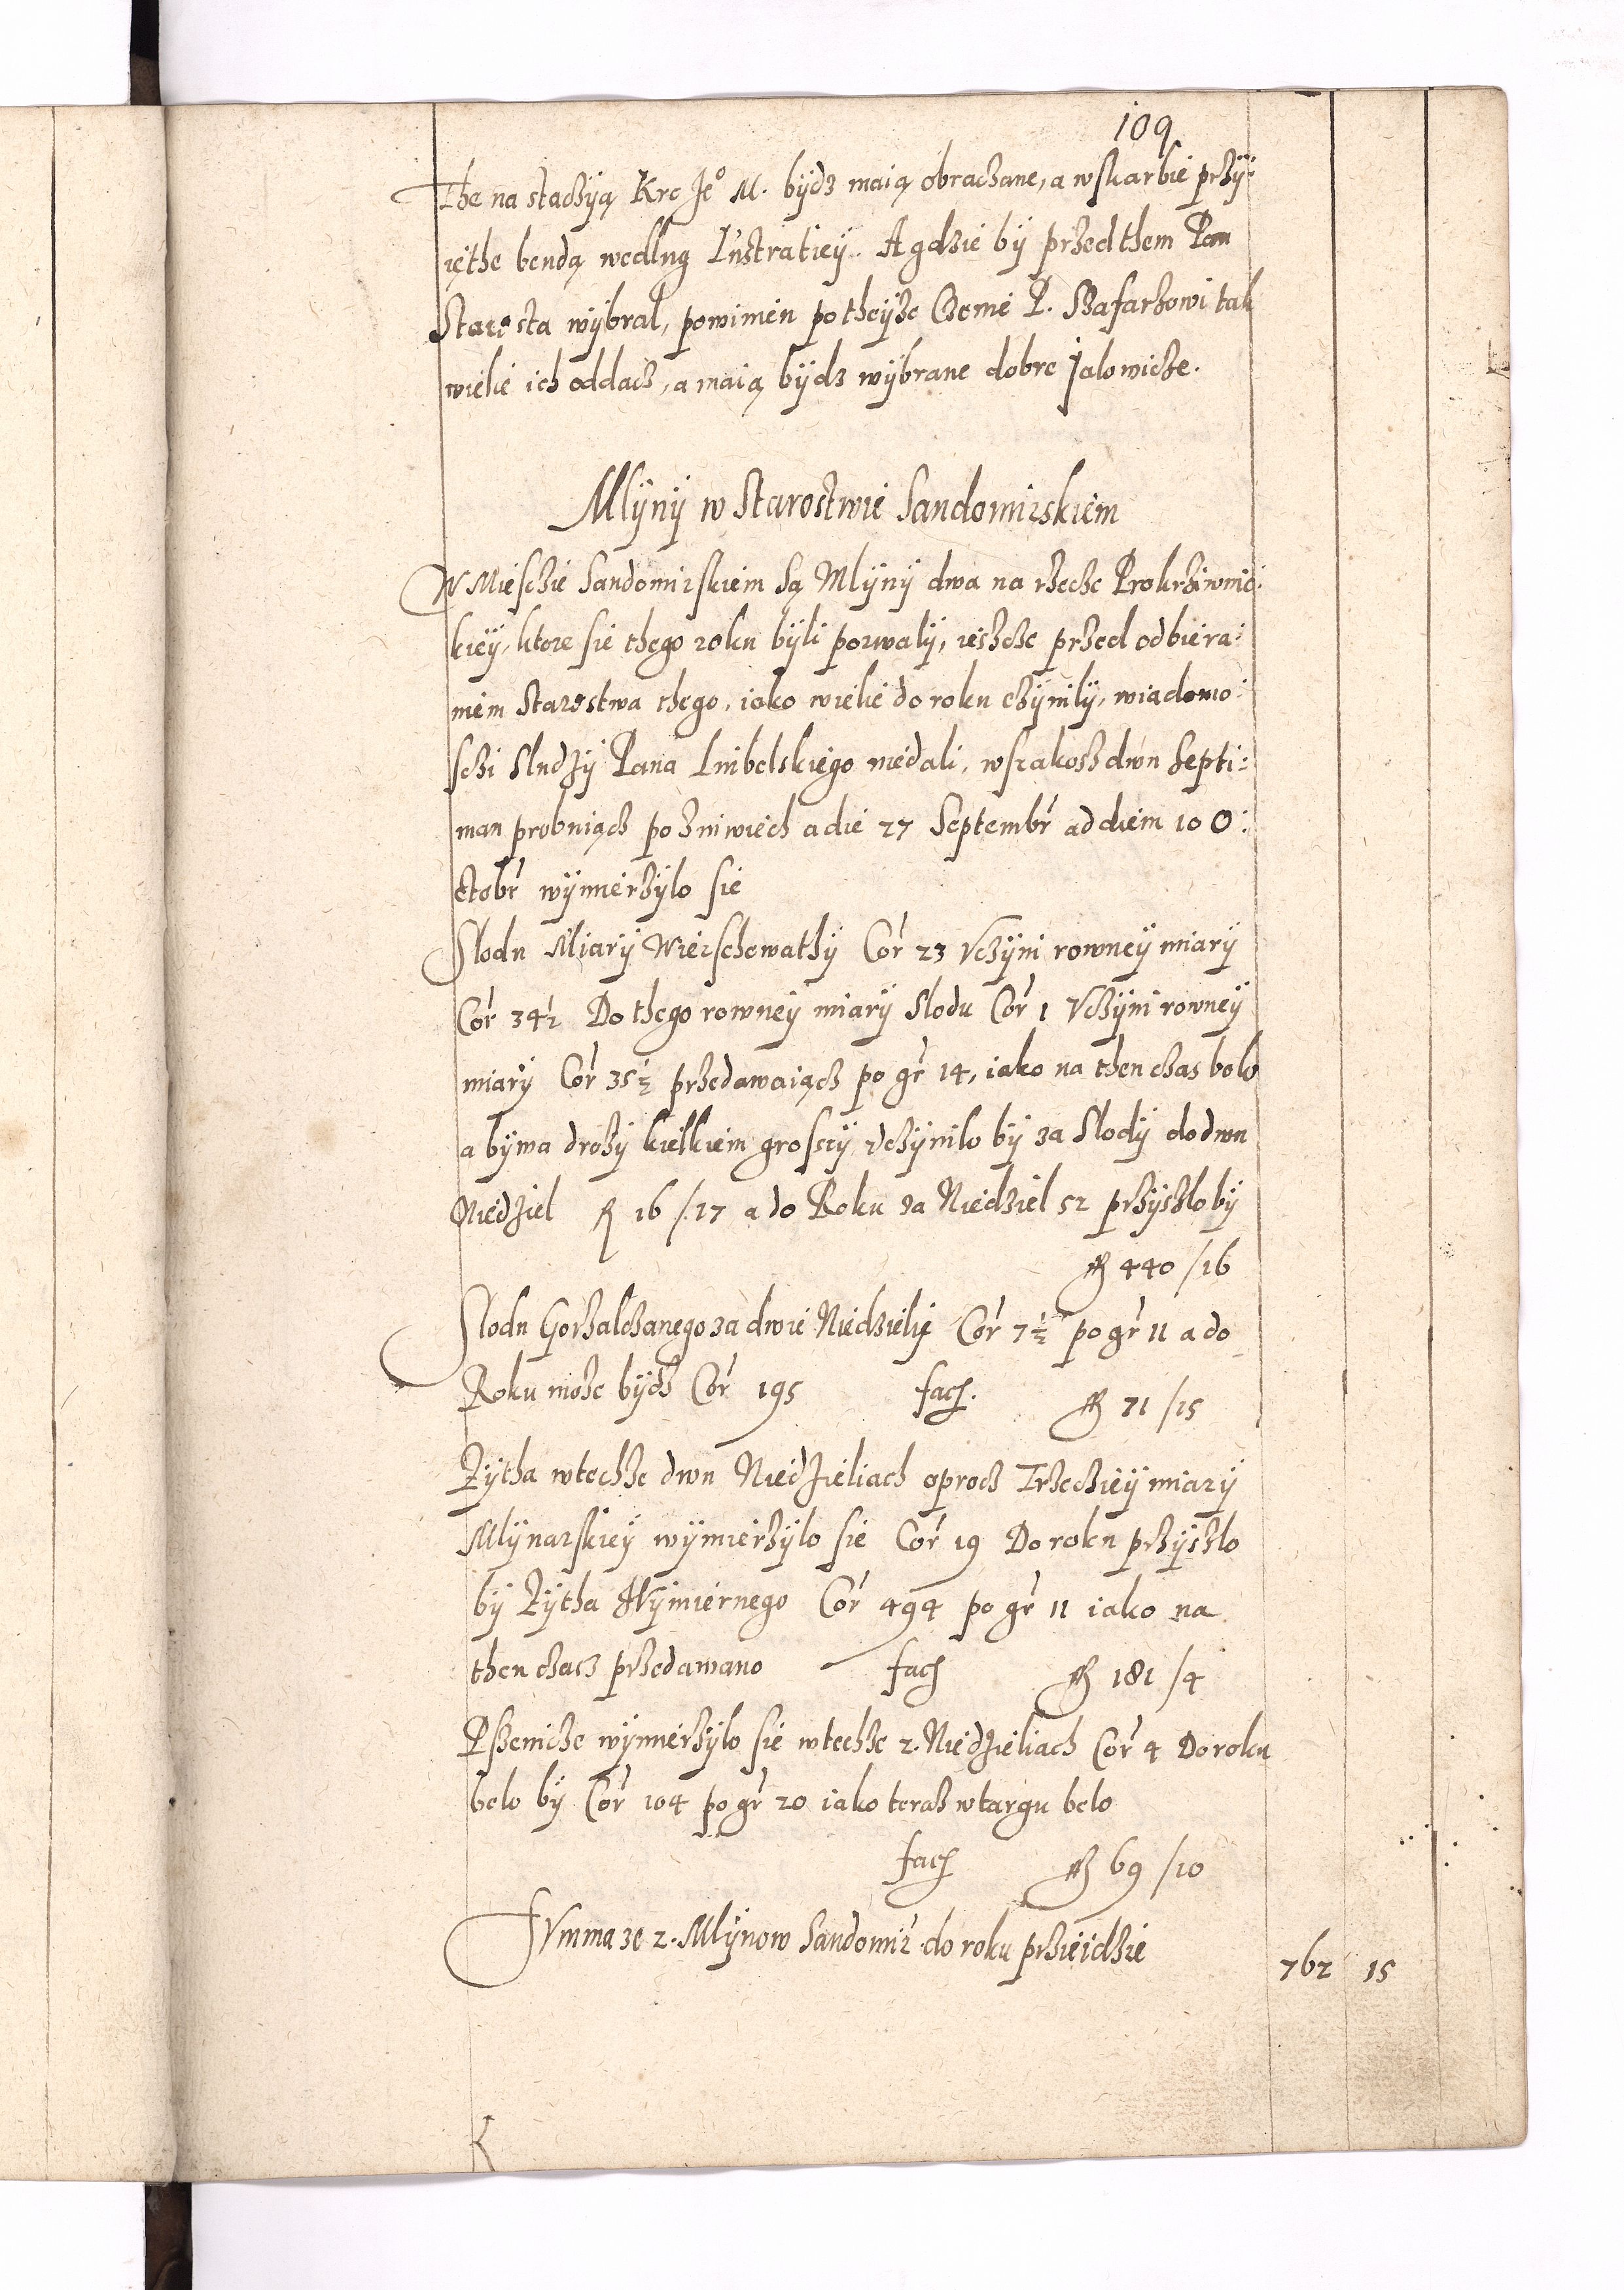 109
The na stachyą Kre Jeº M. bydz maią obrachane, a w skarbie przy:
ięthe bendą wedlug Lustratiey. A gdzie by przed them Pan
Starosta wybral, powinien po theyze Czenie P. Szafarzowi tak
wiele ich oddacz, a maią bydz wybrane dobre jalowicze.
Mlyny w Starostwie Sandomirskiem
W Miesczie Sandomirskiem Są Mlyny dwa na rzecze Prokrziwnic:
kiey, ktore sie thego roku byli porwaly, ieszcze przed odbiera:
niem Starostwa thego, iako wiele do roku czynily, wiadomo:
sczi Sludzy Pana Lubelskiego niedali, wszakosz dwu Septi:
man probuiącz po zniwiech a die 27 Septembr ad diem 10 O:
ctobr wymierzylo sie
Slodu Miary Wierschowathy Cor 23 Vczyni rowney miary
Cor 34½ Do thego rowney miary Slodu Cor 1 Vczyni rowney
miary Cor 35½ przedawaiącz po gr 14, iako na then czas bolo
a bywa drozy kielkiem groszy vczynilo by za Slody do dwu
Niedziel fl 16 /.17 a do Roku za Niedziel 52 przyszlo by
fl 440 /16
Slodu Gorzalczanego za dwie Niedzieli Cor 7½ po gr 11 a do
Roku moze bydz Cor 195 facit. fl 71 /15
Zytha w techze dwu Niedzieliach oprocz Trzeciey miary
Mlynarskiey wymierzylo sie Cor 19 Do roku przyszlo
by Zytha Wymiernego Cor 494 po gr 11 iako na
then czas przedawano facit fl 181 /4
Pszenicze wymierzylo sie w techze 2. Niedzieliach Cor 4 Do roku
belo by Cor 104 po gr 20 iako teraz w targu belo
facit fl 69 /10
Summa ze 2. Mlynow Sandomir do roku przieidzie 762 15